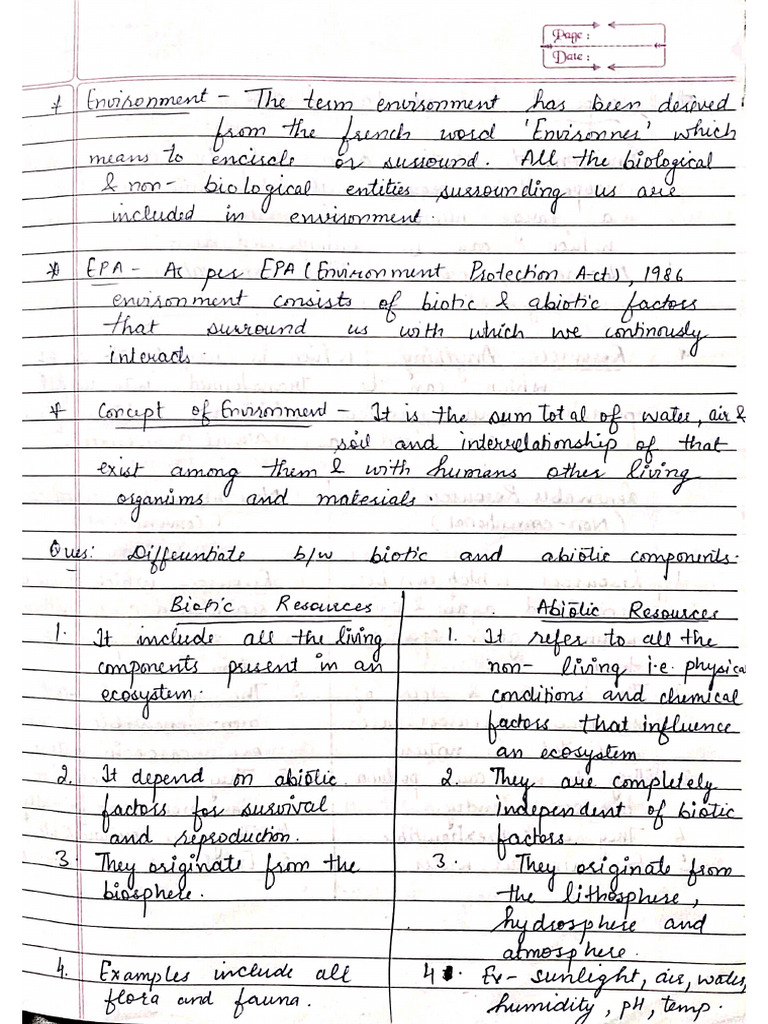 Page :
Date :
* Environment - The term environment has been derived
from the french word 'Environner' which
means to encircle or surround. All the biological
& non- biological entities surrounding us are
included in environment.
* EPA - As per EPA (Environment Protection Act), 1986
environment consists of biotic & abiotic factors
that surround us with which we continously
interacts
* Concept of Environment - It is the sum total of water, air &
soil and interrelationship of that
exist among them & with humans other living
organims and materials.
Ques: Differentiate b/w biotic and abiotic components.
Biotic Resources
1. It include all the living
components present in an
ecosystem.
2. It depend on abiotic
factors for survival
and reproduction.
3. They originate from the
biosphere.
4. Examples include all
flora and fauna.
Abiotic Resources
1. It refer to all the
non- living i.e. physical
conditions and chemical
factors that influence
an ecosystem
2. They are completely
independent of biotic
factors.
3. They originate from
the lithosphere,
hydrosphere and
atmosphere.
4. Ex- sunlight, air, water,
humidity, pH, temp.